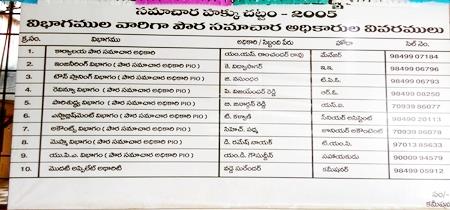 సమాచార హక్కు చట్టం - 2005
విభాగముల వారిగా పౌర సమాచార అధికారుల వివరములు
క్ర.సం. విభాగము అధికారి / సిబ్బంది పేరు హోదా సెల్ నెం.
1. కార్యాలయ పౌర సమాచార అధికారి యం.ఎస్. రాంచందర్ రావు మేనేజర్ 98499 07184
2. ఇంజనీరింగ్ విభాగం ( పౌర సమాచార అధికారి PIO ) కె. విద్యాసాగర్ ఇ.ఇ. 98499 06796
3. టౌన్ ప్లానింగ్ విభాగం ( పౌర సమాచార అధికారి PIO ) జ. వసుంధర టి.పి.ఓ. 98499 06793
4. రెవెన్యూ విభాగం ( పౌర సమాచార అధికారి PIO ) పి. విజయేందర్ రెడ్డి ఆర్.ఓ. 98490 08250
5. పారిశుధ్య విభాగం ( పౌర సమాచార అధికారి PIO ) జి. జనార్దన్ రెడ్డి యస్.ఐ. 70939 86077
6. ఎస్టాబ్లిష్‌మెంట్ విభాగం ( పౌర సమాచార అధికారి PIO ) టి. కళ్యాణి సీనియర్ అసిస్టెంట్ 98490 20113
7. అకౌంట్స్ విభాగం ( పౌర సమాచార అధికారి PIO ) సిహెచ్. పద్మ జూనియర్ అకౌంటెంట్ 70939 86079
8. మెప్మా విభాగం ( పౌర సమాచార అధికారి PIO ) డి. రమేష్ నాయక్ టి.యం.సి. 97013 85633
9. యు.పి.ఎ. విభాగం ( పౌర సమాచార అధికారి PIO ) యం.డి. గౌసుద్దీన్ సహాయకుడు 90009 94579
10. మొదటి అప్పిలేట్ అథారిటి వడ్డె సురేందర్ కమీషనర్ 98499 05912
సం/-